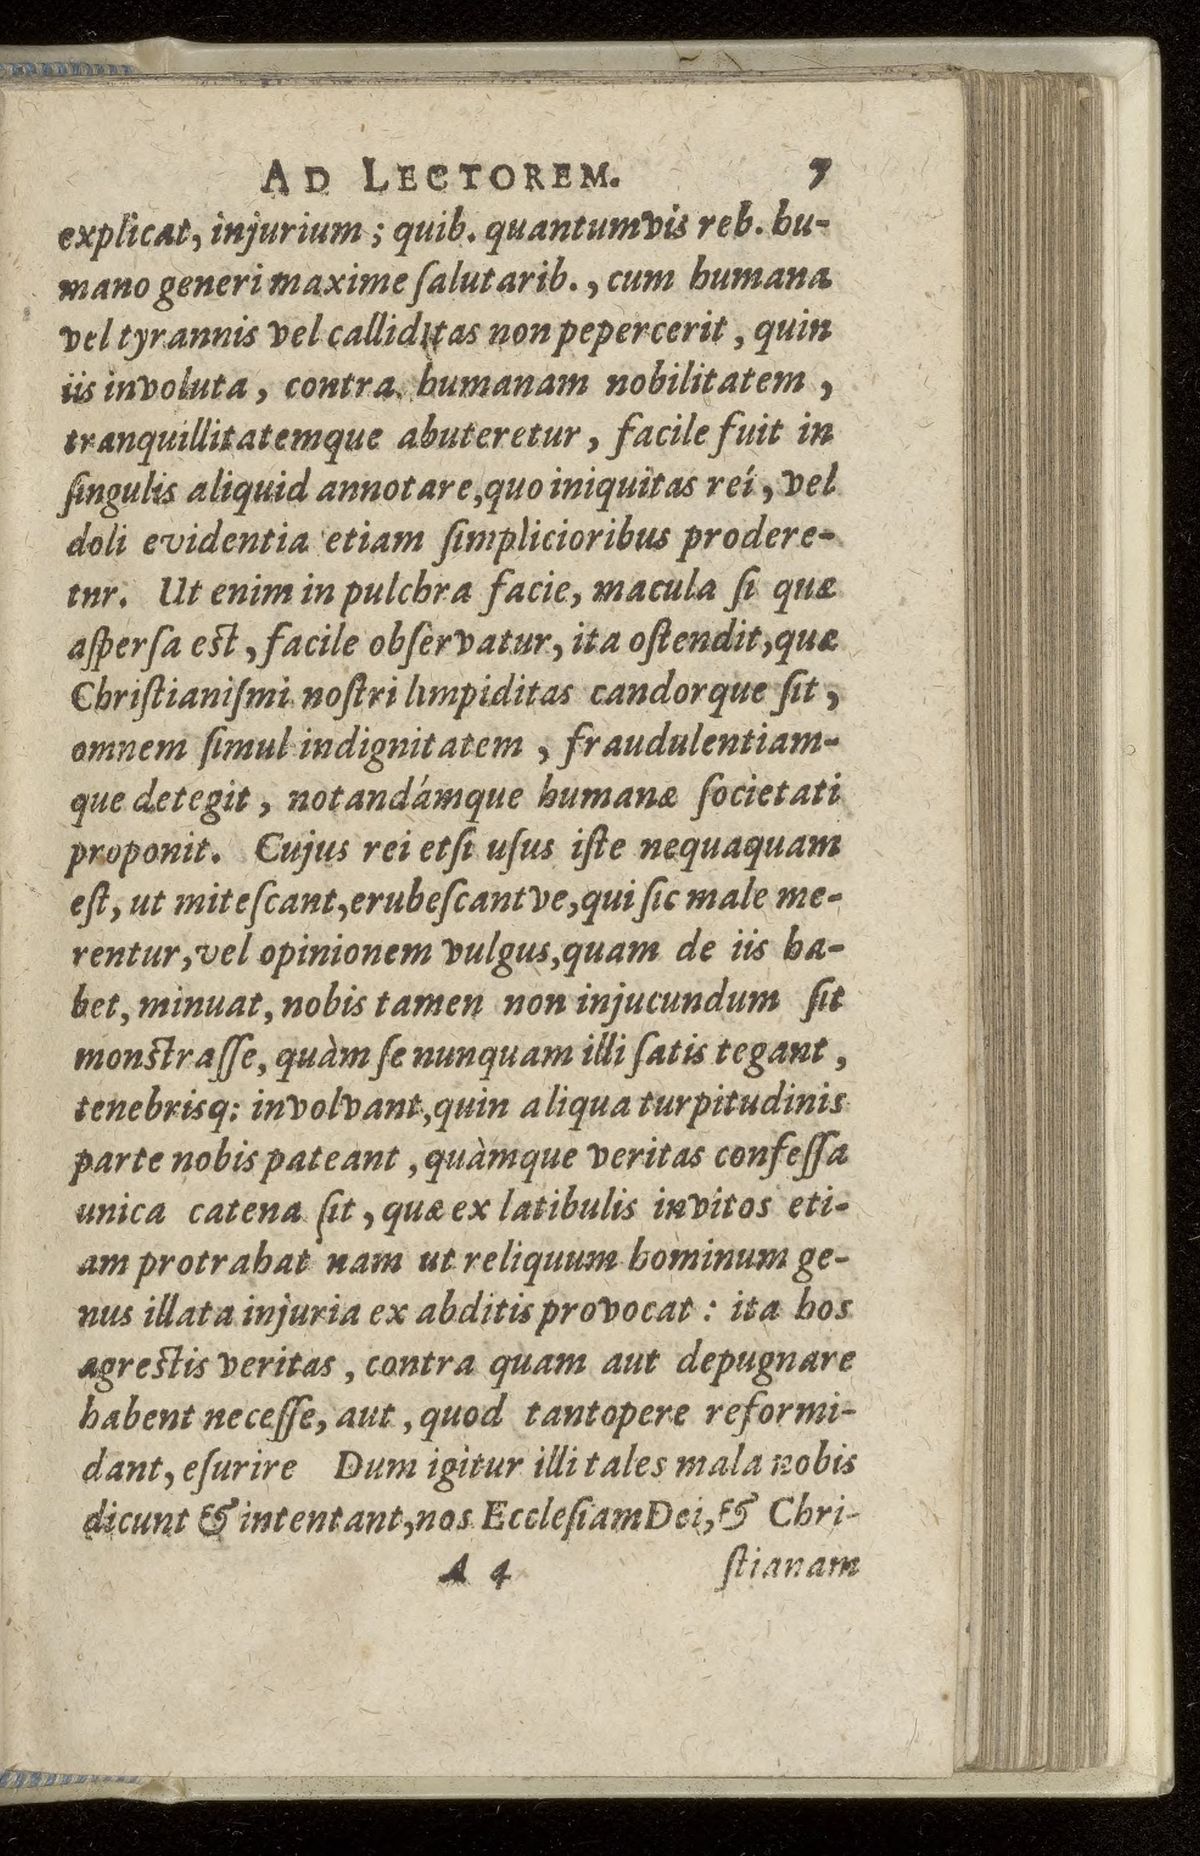 AD LECTOREM. 7
explicat, injurium; quib. quantumvis reb. hu-
mano generi maxime ſalutarib., cum humana
vel tyrannis vel calliditas non pepercerit, quin
iis involuta, contra humanam nobilitatem,
tranquillitatemque abuteretur, facile fuit in
ſingulis aliquid annotare, quo iniquitas rei, vel
doli evidentia etiam ſimplicioribus prodere-
tur. Ut enim in pulchra facie, macula ſi quæ
aſperſa eſt, facile obſervatur, ita oſtendit, quæ
Chriſtianiſmi noſtri limpiditas candorque ſit,
omnem ſimul indignitatem, fraudulentiam-
que detegit, notandámque humanæ ſocietati
proponit. Cujus rei etſi uſus iſte nequaquam
eſt, ut miteſcant, erubeſcantve, qui ſic male me-
rentur, vel opinionem vulgus, quam de iis ha-
bet, minuat, nobis tamen non injucundum ſit
monſtraſſe, quàm ſe nunquam illi ſatis tegant,
tenebrisq; involvant, quin aliqua turpitudinis
parte nobis pateant, quàmque veritas confeſſa
unica catena ſit, quæ ex latibulis invitos eti-
am protrahat nam ut reliquum hominum ge-
nus illata injuria ex abditis provocat: ita hos
agreſtis veritas, contra quam aut depugnare
habent neceſſe, aut, quod tantopere reformi-
dant, eſurire Dum igitur illi tales mala nobis
dicunt & intentant, nos Eccleſiam Dei, & Chri-
A 4 ſtianam